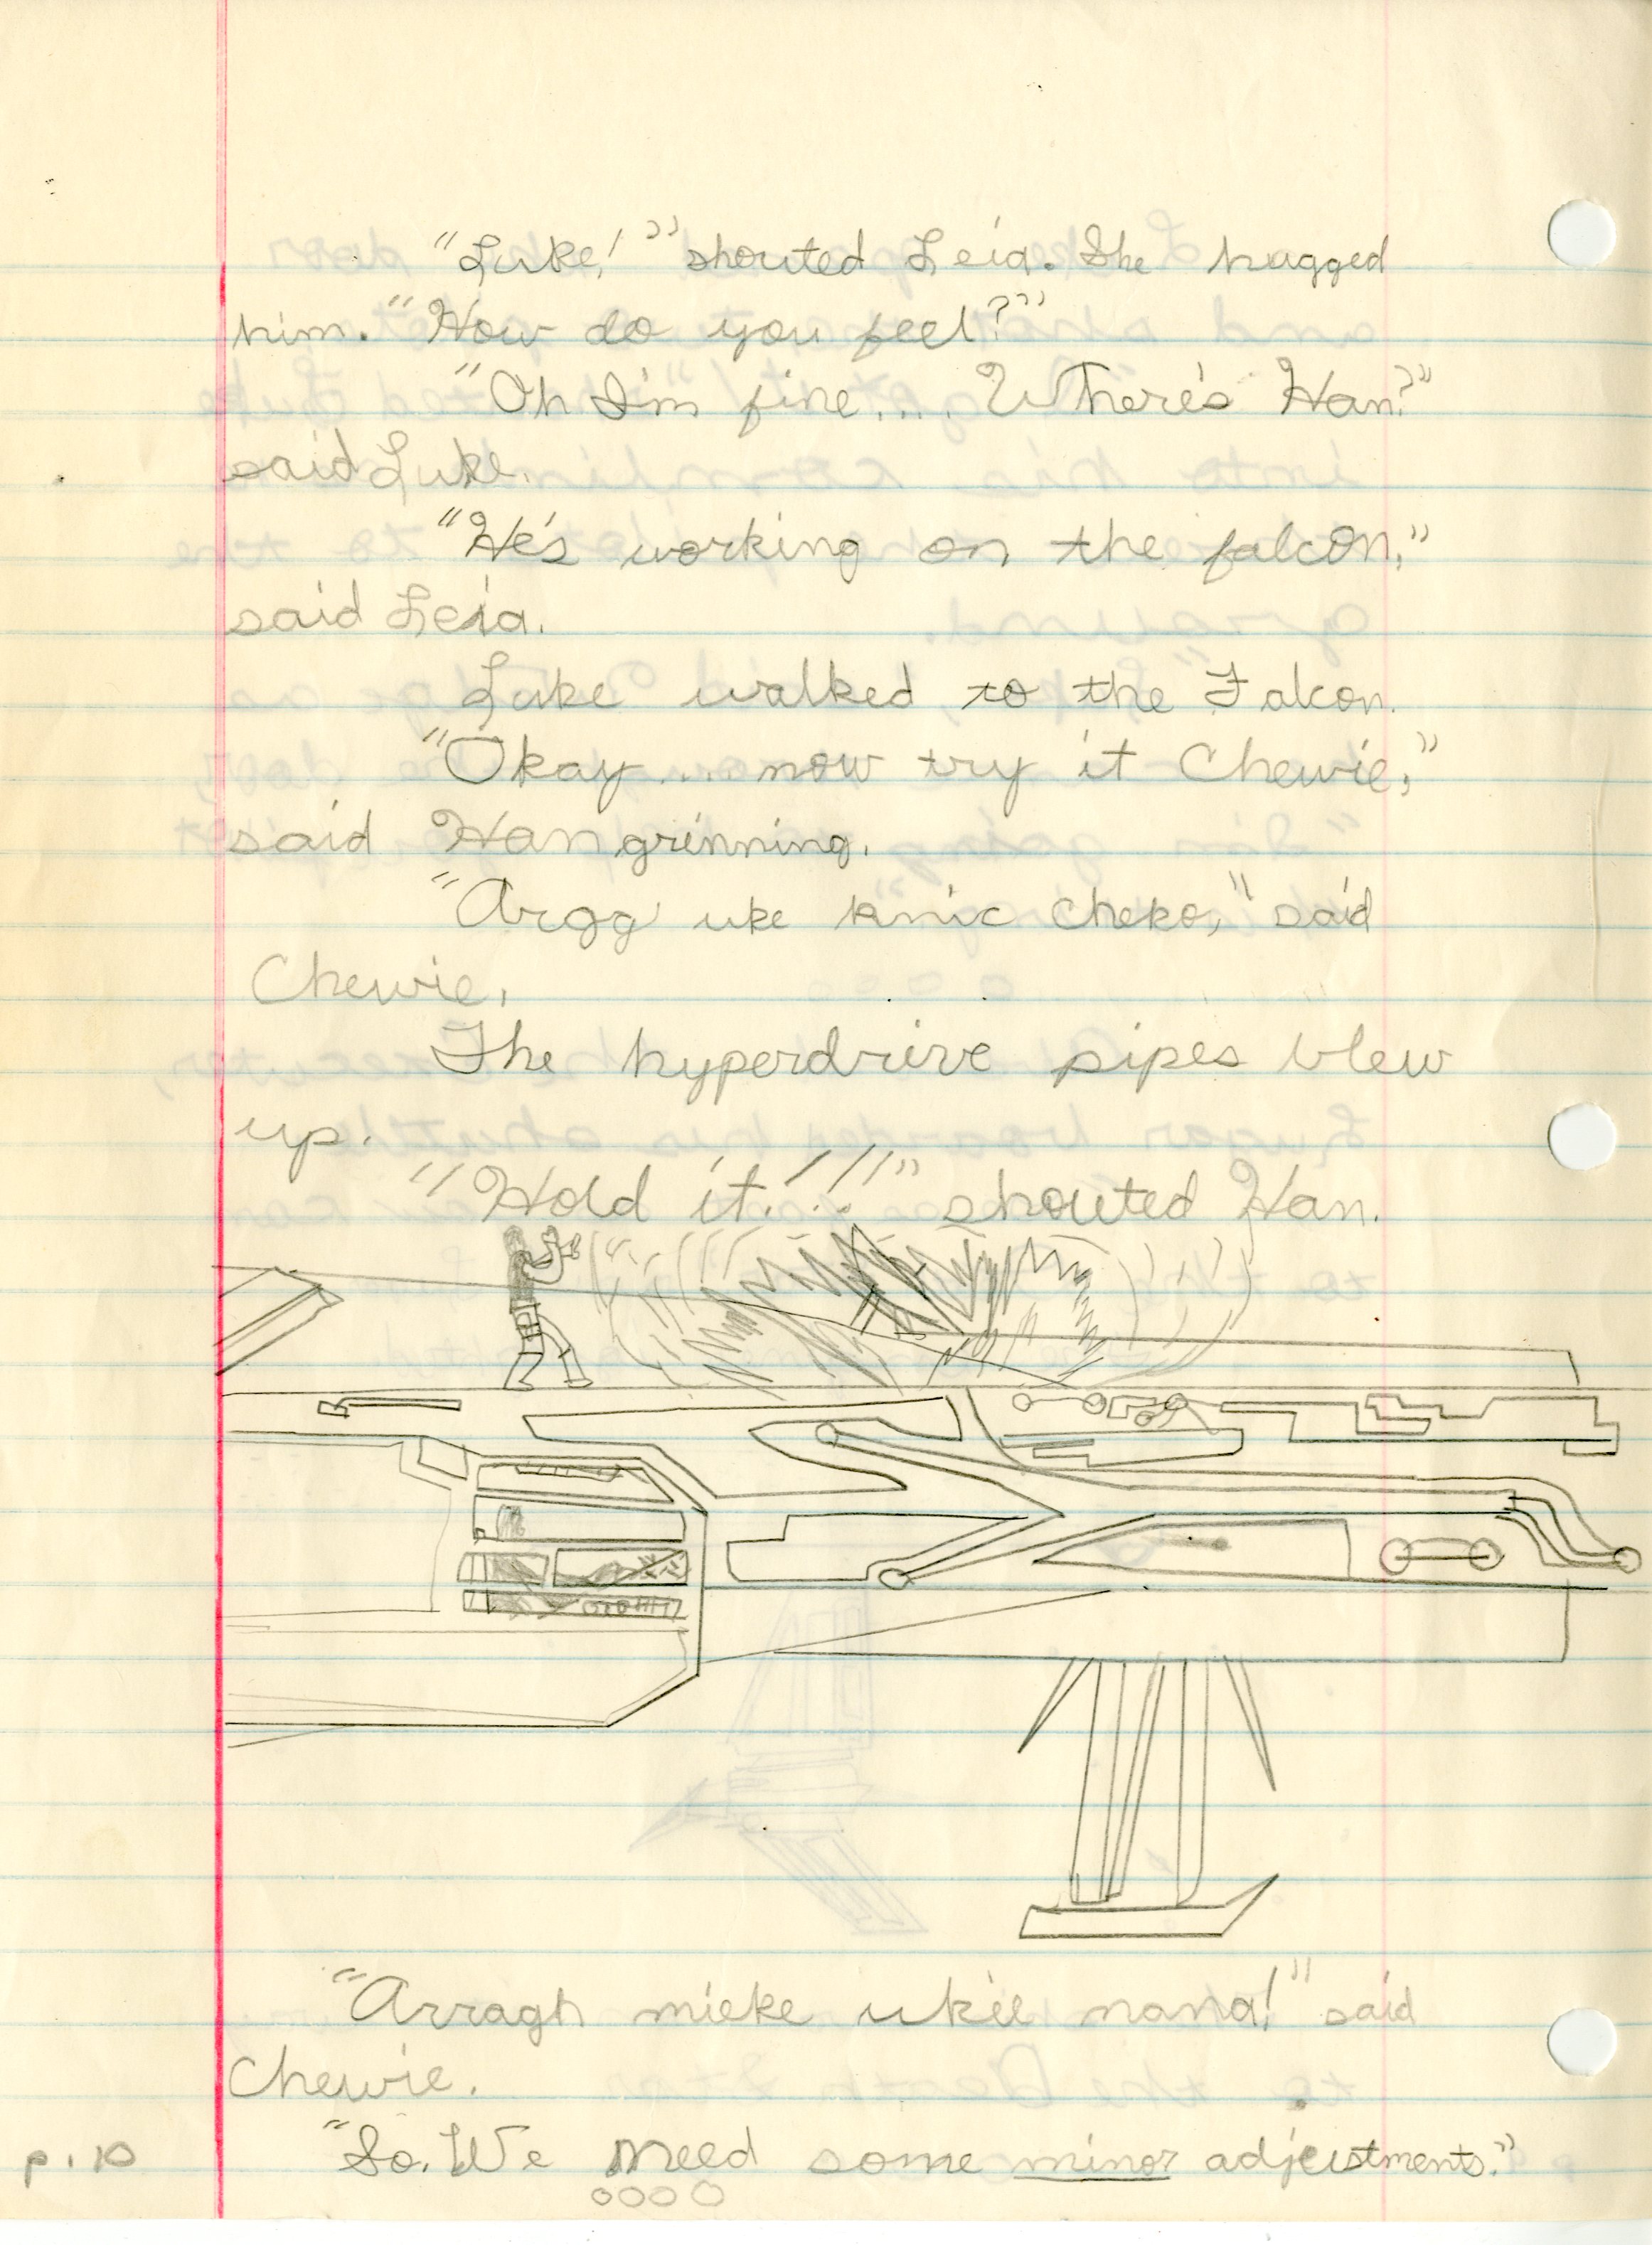 "Luke!" shouted Leia. She hugged
him. "How do you feel?"
"Oh I'm fine.... Where's Han?"
said Luke.
"He's working on the falcon,"
said Leia.
Luke walked to the Falcon.
"Okay.... now try it Chewie,"
said Han grinning.
"Argg uke knic cheko," said
Chewie.
The hyperdrive pipes blew
up.
"Hold it!!!" shouted Han.
"Arragh mieke ukie nana!" said
Chewie.
"So. We need some minor adjustments."
p. 10